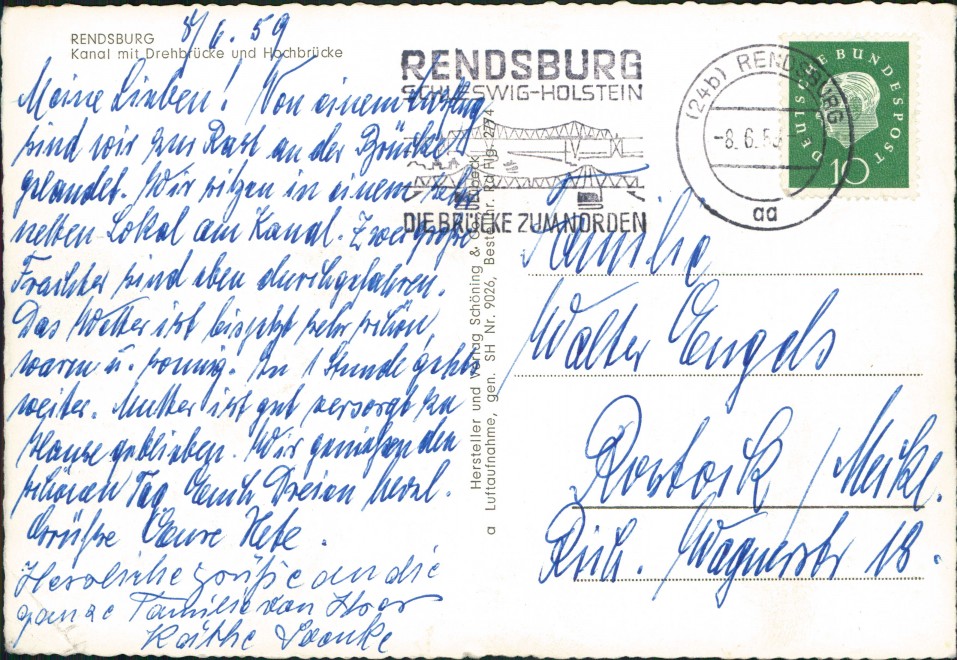 RENDSBURG
Kanal mit Drehbrücke und Hochbrücke
8/6.59
Meine Lieben! Von einem Ausflug
sind wir zur Rast an der Brücke
gelandet. Wir sitzen in einem sehr
netten Lokal am Kanal. Zwei große
Frachter sind eben durchgefahren.
Das Wetter ist bisjetzt sehr schön,
warm u. sonnig. In 1 Stunde geht's
weiter. Mutter ist gut versorgt zu
Hause geblieben. Wir genießen den
schönen Tag. Euch Dreien herzl.
Grüße Eure Hete.
Herzliche Grüße an die
ganze Familie von Ihrer
Käthe
Hersteller und Verlag Schöning & Co., Lübeck
a Luftaufnahme, gen. SH Nr. 9026, Bestellnr. Ra Flg. 2774
RENDSBURG
SCHLESWIG-HOLSTEIN
DIE BRÜCKE ZUM NORDEN
(24b) RENDSBURG
-8.6.59-
aa
DEUTSCHE BUNDESPOST
10
Familie
Walter Engels
Rostock / Meckl.
Rich. Wagnerstr 18.